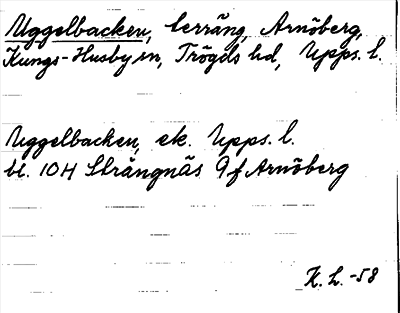 Uggelbacken, terräng, Arnöberg,
Kungs-Husby sn, Trögds hd, Upps. l.
Uggelbacken, ek. Upps. l.
bl. 10H Strängnäs 9f Arnöberg
K. L. -58